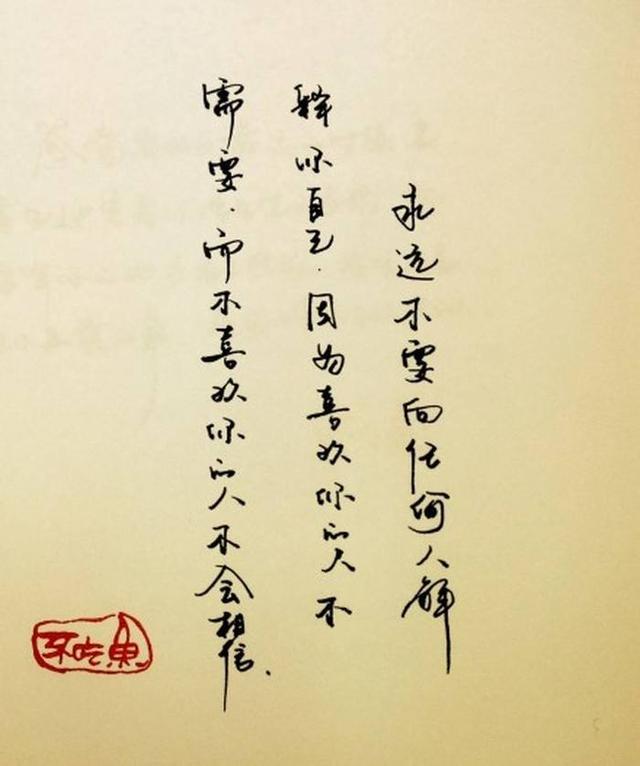 永远不要向任何人解
释你自己.因为喜欢你的人不
需要.而不喜欢你的人不会相信.
不吃鱼